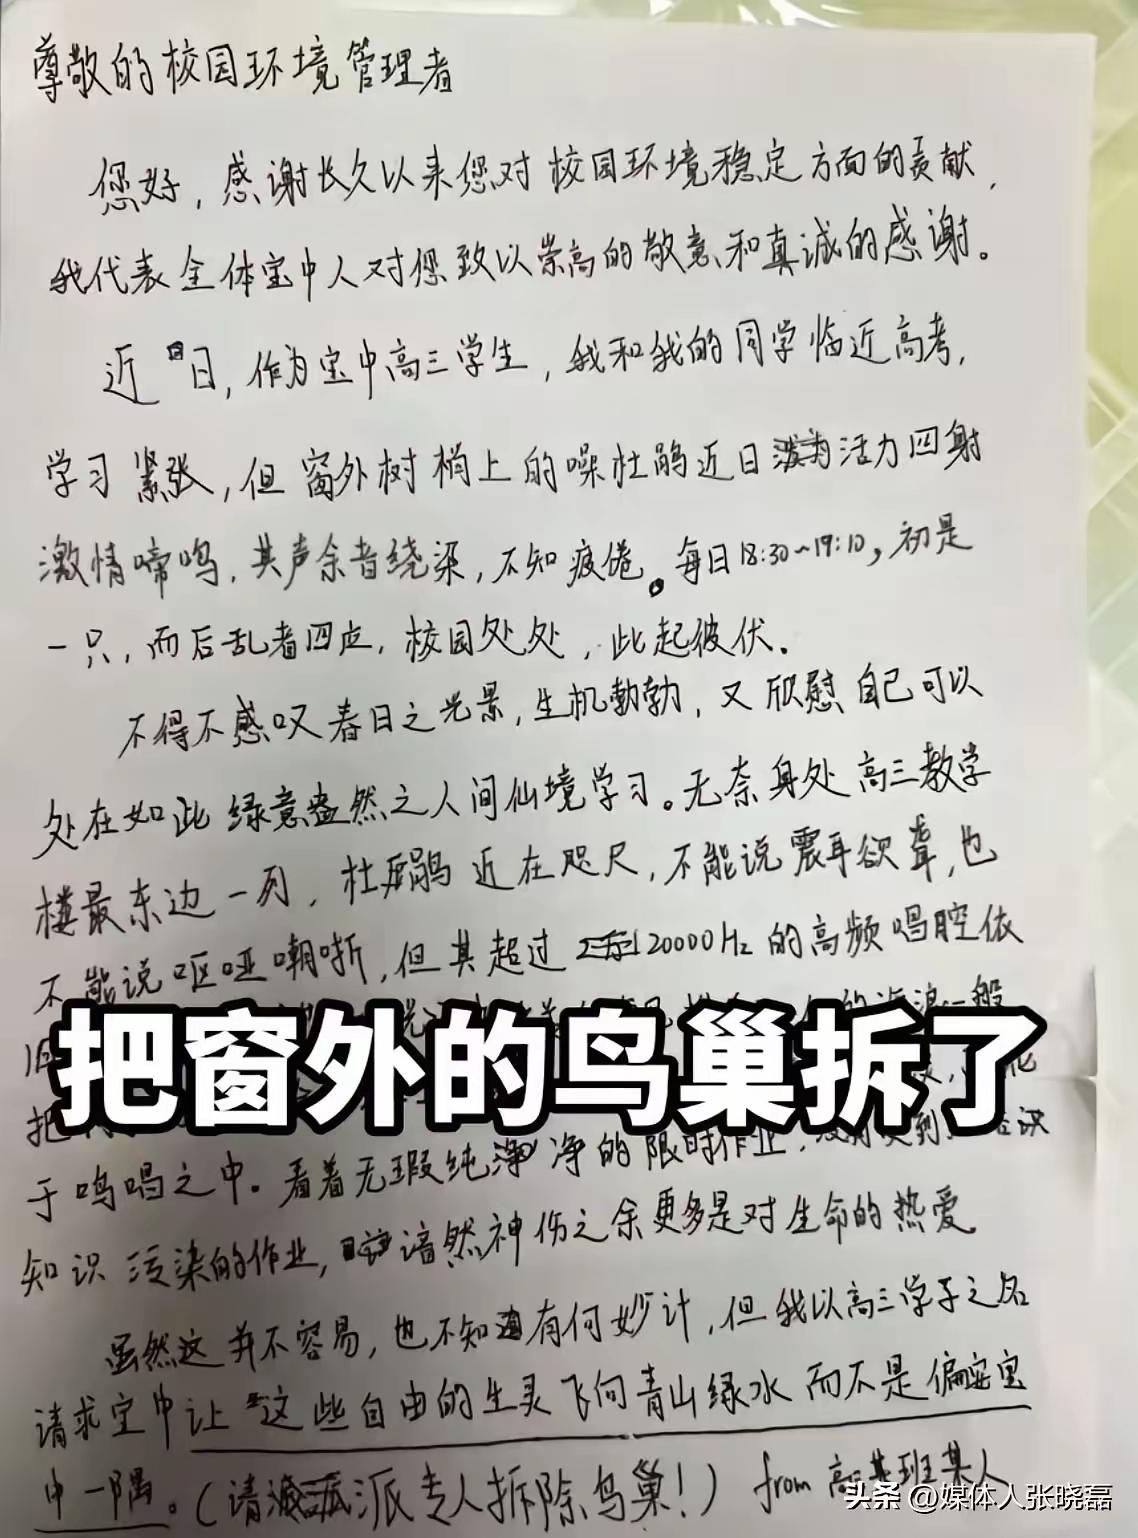 尊敬的校园环境管理者
您好，感谢长久以来您对校园环境稳定方面的贡献，
我代表全体宝中人对您致以崇高的敬意和真诚的感谢。
近日，作为宝中高三学生，我和我的同学临近高考，
学习紧张，但窗外树梢上的噪杜鹃近日活力四射
激情啼鸣，其声余音绕梁，不知疲倦。每日18:30~19:10，初是
一只，而后乱者四应，校园处处，此起彼伏。
不得不感叹春日之光景，生机勃勃，又欣慰自己可以
处在如此绿意盎然之人间仙境学习。无奈身处高三教学
楼最东边一列，杜鹃近在咫尺，不能说震耳欲聋，也
不能说呕哑嘲哳，但其超过20000Hz的高频唱腔依
旧
一般
把窗外的鸟巢拆了
把
于鸣唱之中。看着无瑕纯净的限时作业，
知识污染的作业，谙然神伤之余更多是对生命的热爱
虽然这并不容易，也不知有何妙计，但我以高三学子之名
请求宝中让这些自由的生灵飞向青山绿水而不是偏安宝
中一隅。（请派专人拆除鸟巢！）from 高某班某人
头条 @媒体人张晓磊